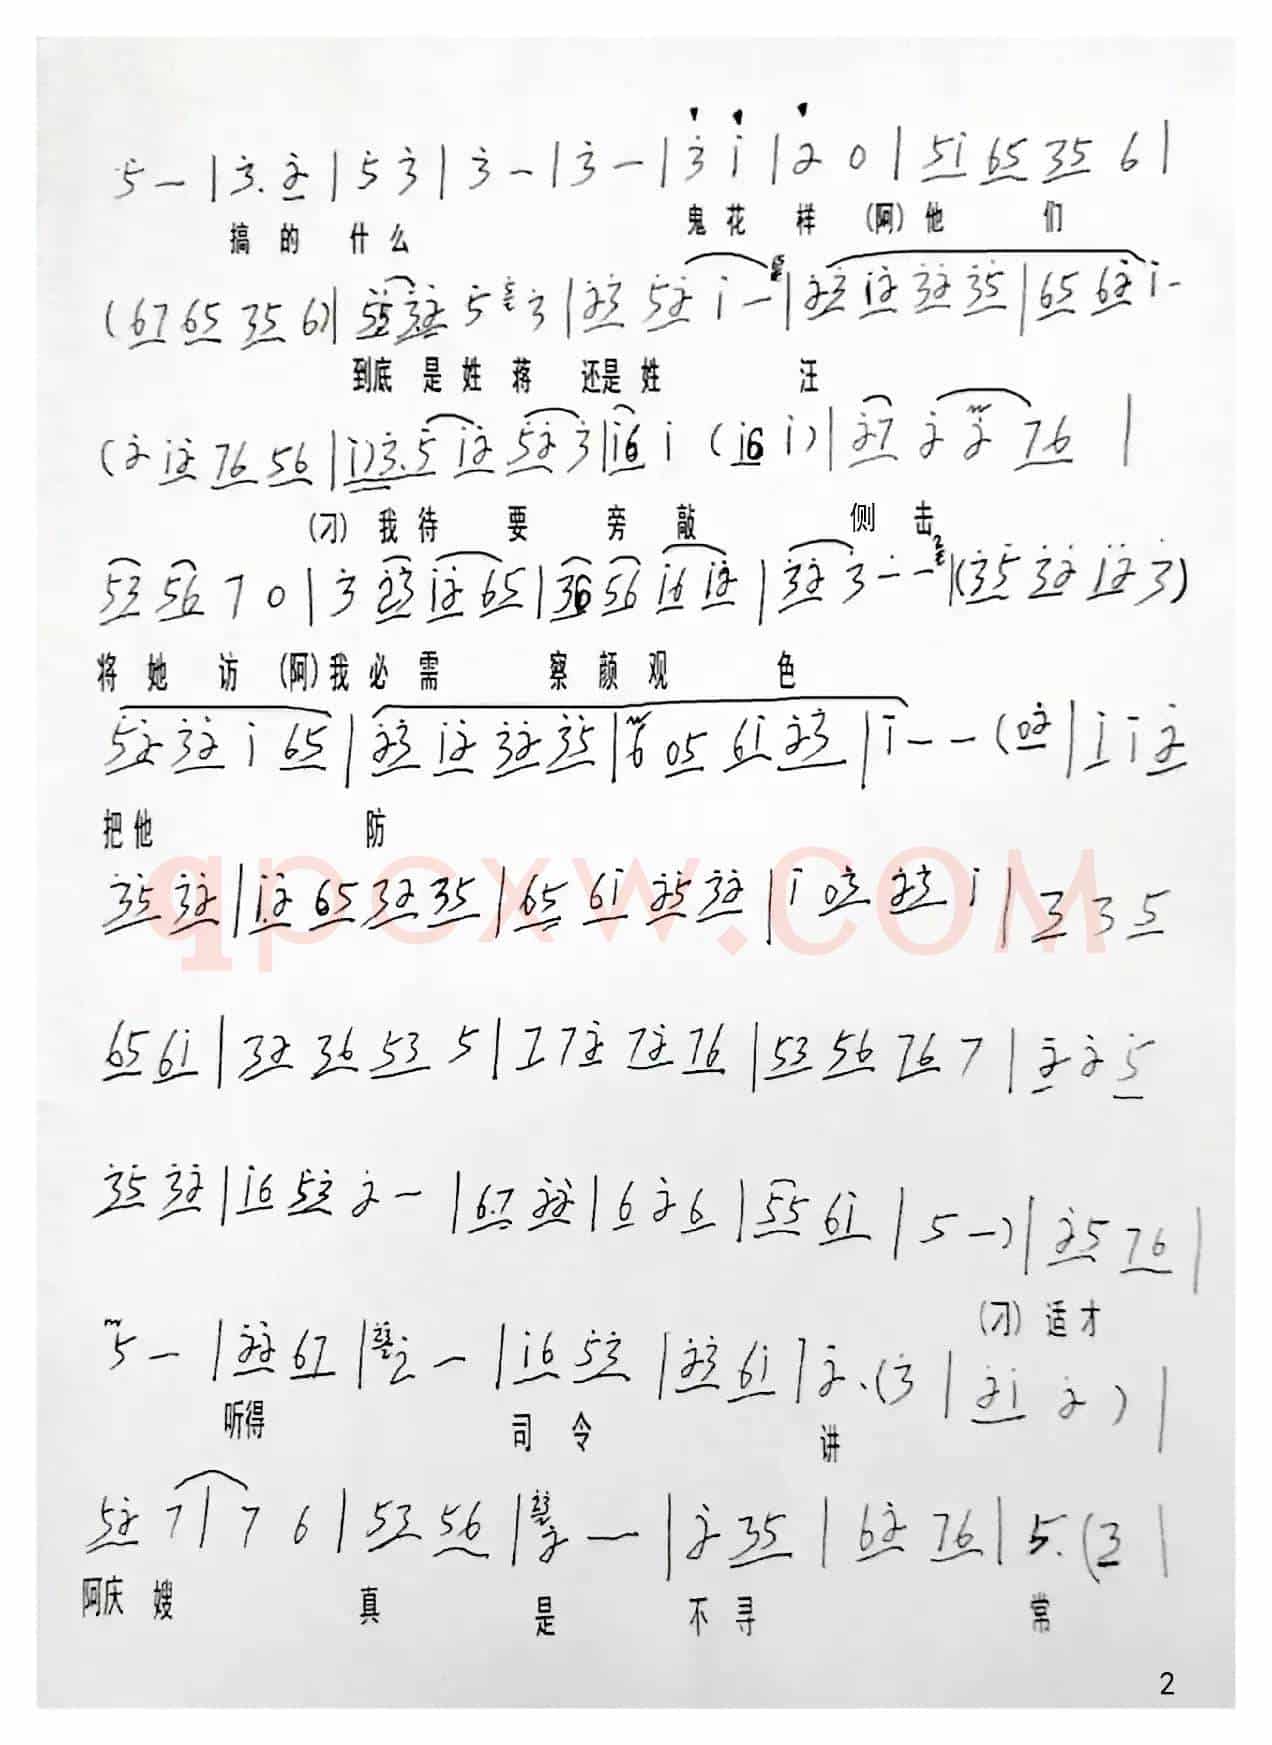 5 — | 3. 2 | 5 3 | 3 — | 3 — | 3 i | 2 0 | 5i 65 35 6 |
搞 的 什 么 鬼 花 样 (阿) 他 们
(67 65 35 6) | 55 32 5 3 | 23 52 i — | 23 i2 32 35 | 65 62 i -
到底 是 姓 蒋 还是 姓 汪
(2 i2 76 56 | i) 3.5 i2 52 3 | i6 i (i6 i) | 27 2 2 76 |
(刁) 我 待 要 旁 敲 侧 击
53 56 7 0 | 3 23 i2 65 | 36 56 i6 i2 | 32 3 - - | (35 32 i2 3)
将 她 访 (阿) 我 必 需 察 颜 观 色
52 32 i 65 | 23 i2 32 35 | 6 05 6i 23 | i — — (02 | i i 2
把 他 防
35 32 | i.2 65 32 35 | 65 6i 25 32 | i 03 23 i | 3 3 5
qpcxw.COM
65 6i | 32 36 53 5 | 7 72 72 76 | 53 56 76 7 | 2 2 5
35 32 | i6 53 2 — | 6.7 22 | 6 2 6 | 55 6i | 5 —) | 25 76 |
(刁) 适 才
5 — | 22 67 | 2 — | i6 53 | 23 6i | 2. (3 | 2i 2 ) |
听得 司 令 讲
52 7 | 7 6 | 53 56 | 2 — | 2 35 | 62 76 | 5. (3 |
阿庆 嫂 真 是 不 寻 常
2